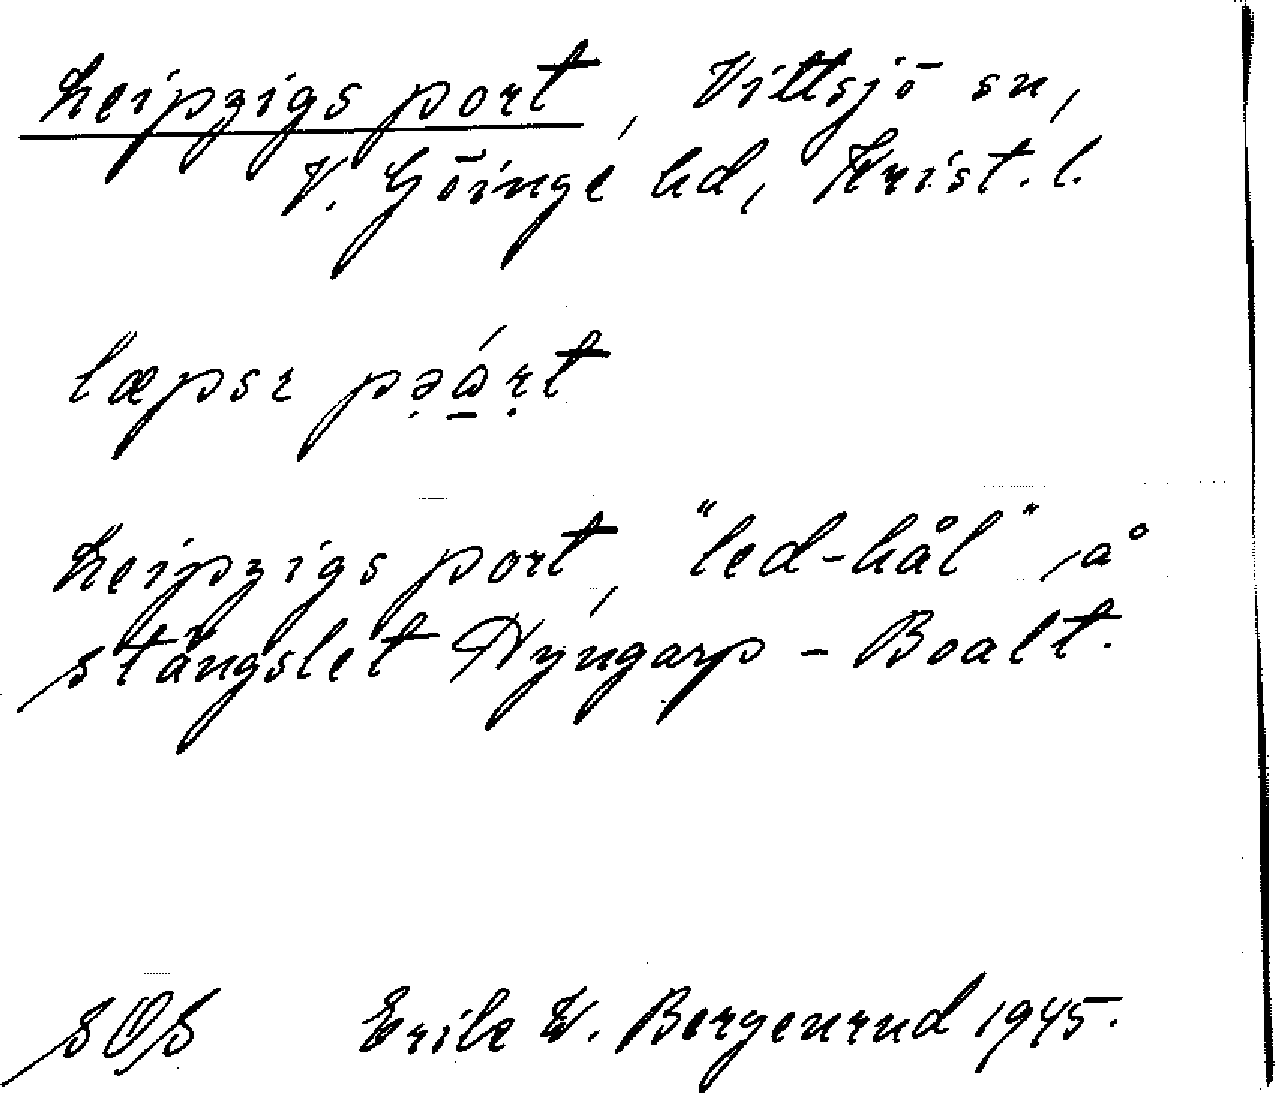 Leipzigs port, Vittsjö sn,
V. Göinge hd, Krist. l.
læpsɪ pə̣á̱ṛt
Leipzigs port, "led-hål", å
stängslet Nyngarp - Boalt.
SOS Erik W. Bergenrud 1945.